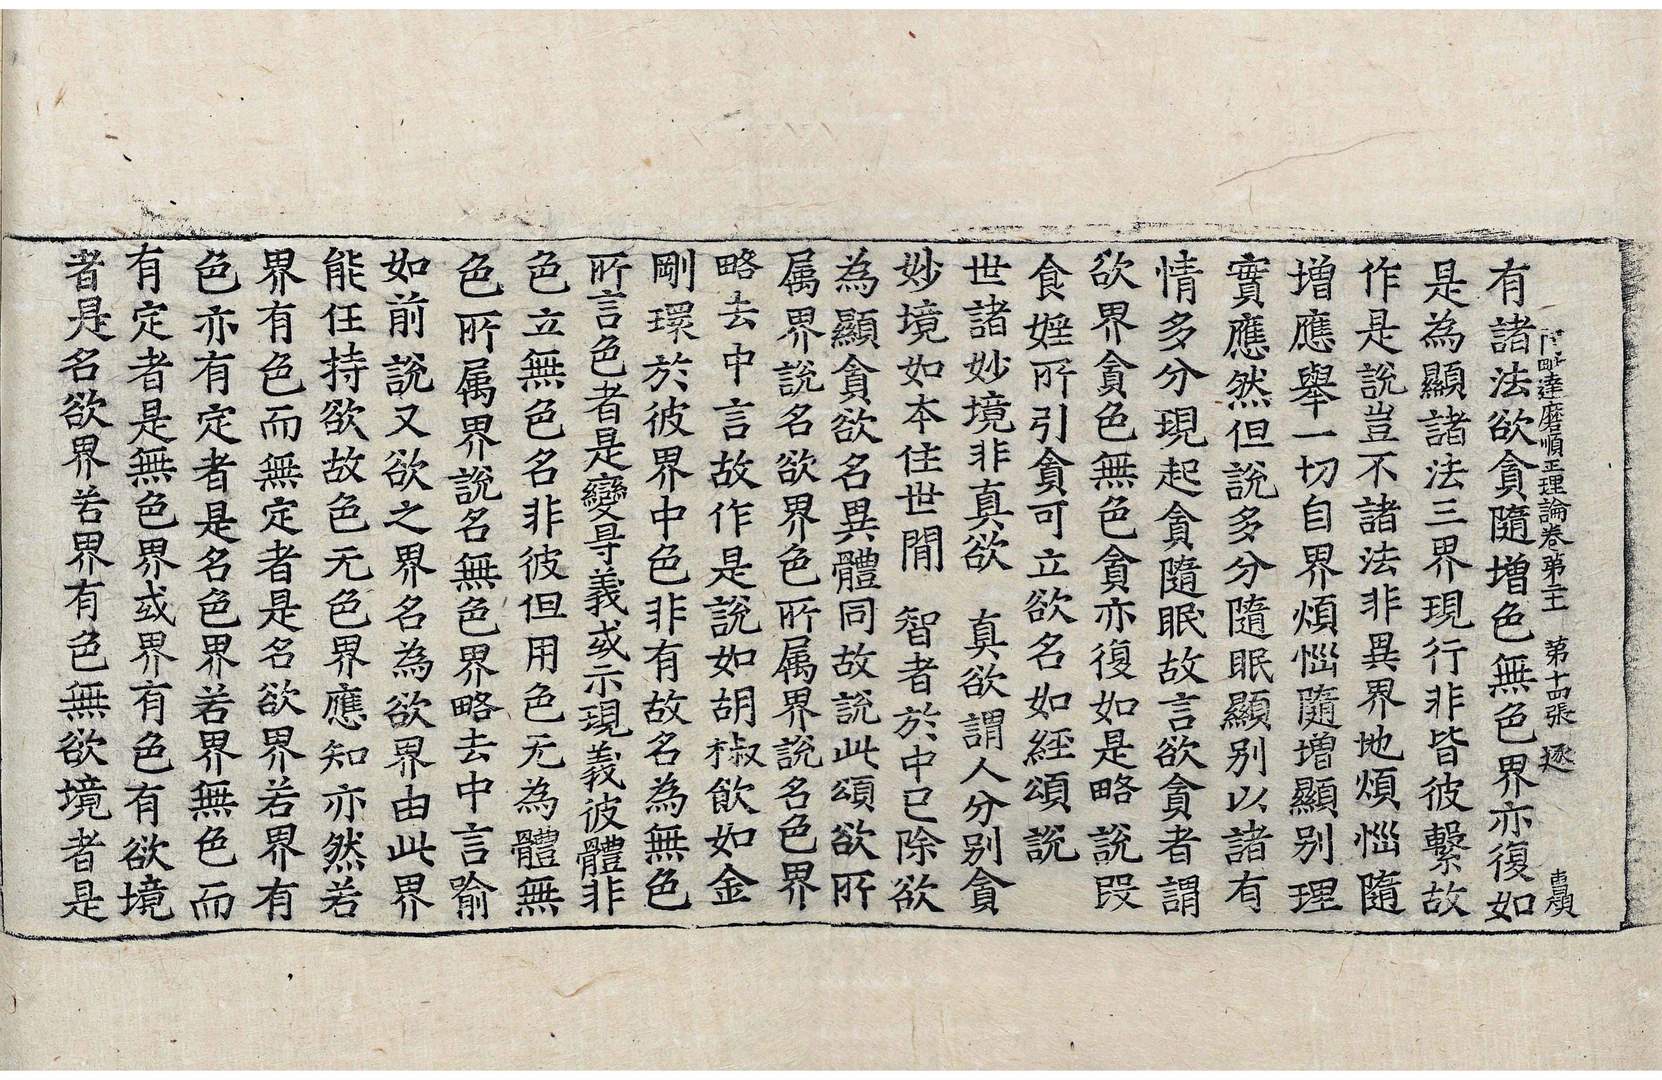 阿毗達磨順正理論卷第二十一 第十四張 逐
有諸法欲貪隨增色無色界亦復如
是為顯諸法三界現行非皆彼繫故
作是說豈不諸法非異界地煩惱隨
增應舉一切自界煩惱隨增顯別理
實應然但說多分隨眠顯別以諸有
情多分現起貪隨眠故言欲貪者謂
欲界貪色無色貪亦復如是略說段
食婬所引貪可立欲名如經頌說
世諸妙境非真欲　真欲謂人分別貪
妙境如本住世間　智者於中已除欲
為顯貪欲名異體同故說此頌欲所
属界說名欲界色所属界說名色界
略去中言故作是說如胡椒飲如金
剛環於彼界中色非有故名為無色
所言色者是變㝵義或示現義彼體非
色立無色名非彼但用色无為體無
色所属界說名無色界略去中言喻
如前說又欲之界名為欲界由此界
能任持欲故色无色界應知亦然若
界有色而無定者是名欲界若界有
色亦有定者是名色界若界無色而
有定者是無色界或界有色有欲境
者是名欲界若界有色無欲境者是